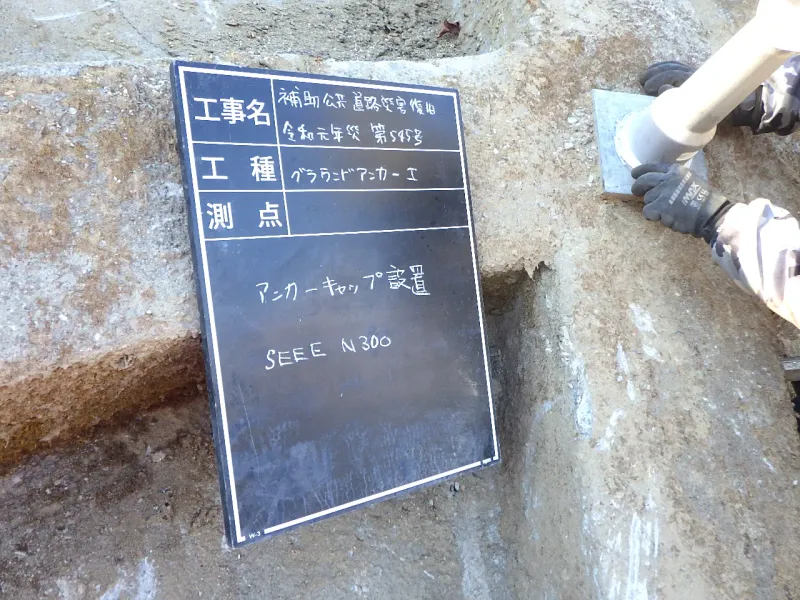 工事名 補助公共道路災害復旧
令和元年災 第545号
工種 グラウンドアンカー工
測点
アンカーキャップ設置
SEEE N300
W-3